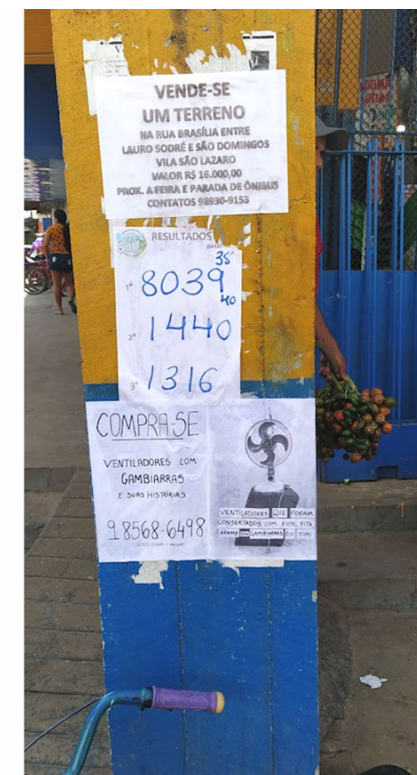 VENDE-SE
UM TERRENO
NA RUA BRASÍLIA ENTRE
LAURO SODRÉ E SÃO DOMINGOS
VILA SÃO LAZARO
VALOR R$ 16.000,00
PROX. A FEIRA E PARADA DE ÔNIBUS
CONTATOS 98930-9153
RESULTADOS
35
1º 8039
40
2º 1440
3º 1316
COMPRA-SE
VENTILADORES COM
GAMBIARRAS
E SUAS HISTÓRIAS
98568-6498
VENTILADORES QUE FORAM
CONSERTADOS COM FIOS, FITA
ARAME OU GAMBIARRAS DO TIPO